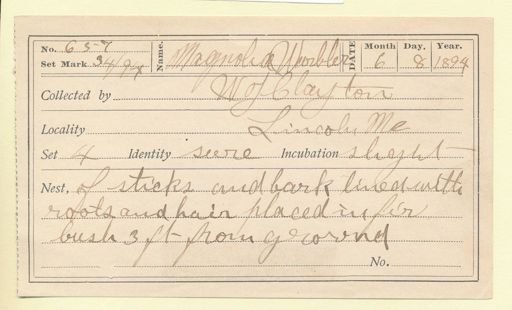 No. 657 Name. Magnolia Warbler DATE Month 6 Day. 8 Year. 1894
Set Mark 34/94
Collected by W J Clayton
Locality Lincoln Me
Set 4 Identity sure Incubation slight
Nest, of sticks and bark lined with
roots and hair placed in fir
bush 3 ft from ground
No.